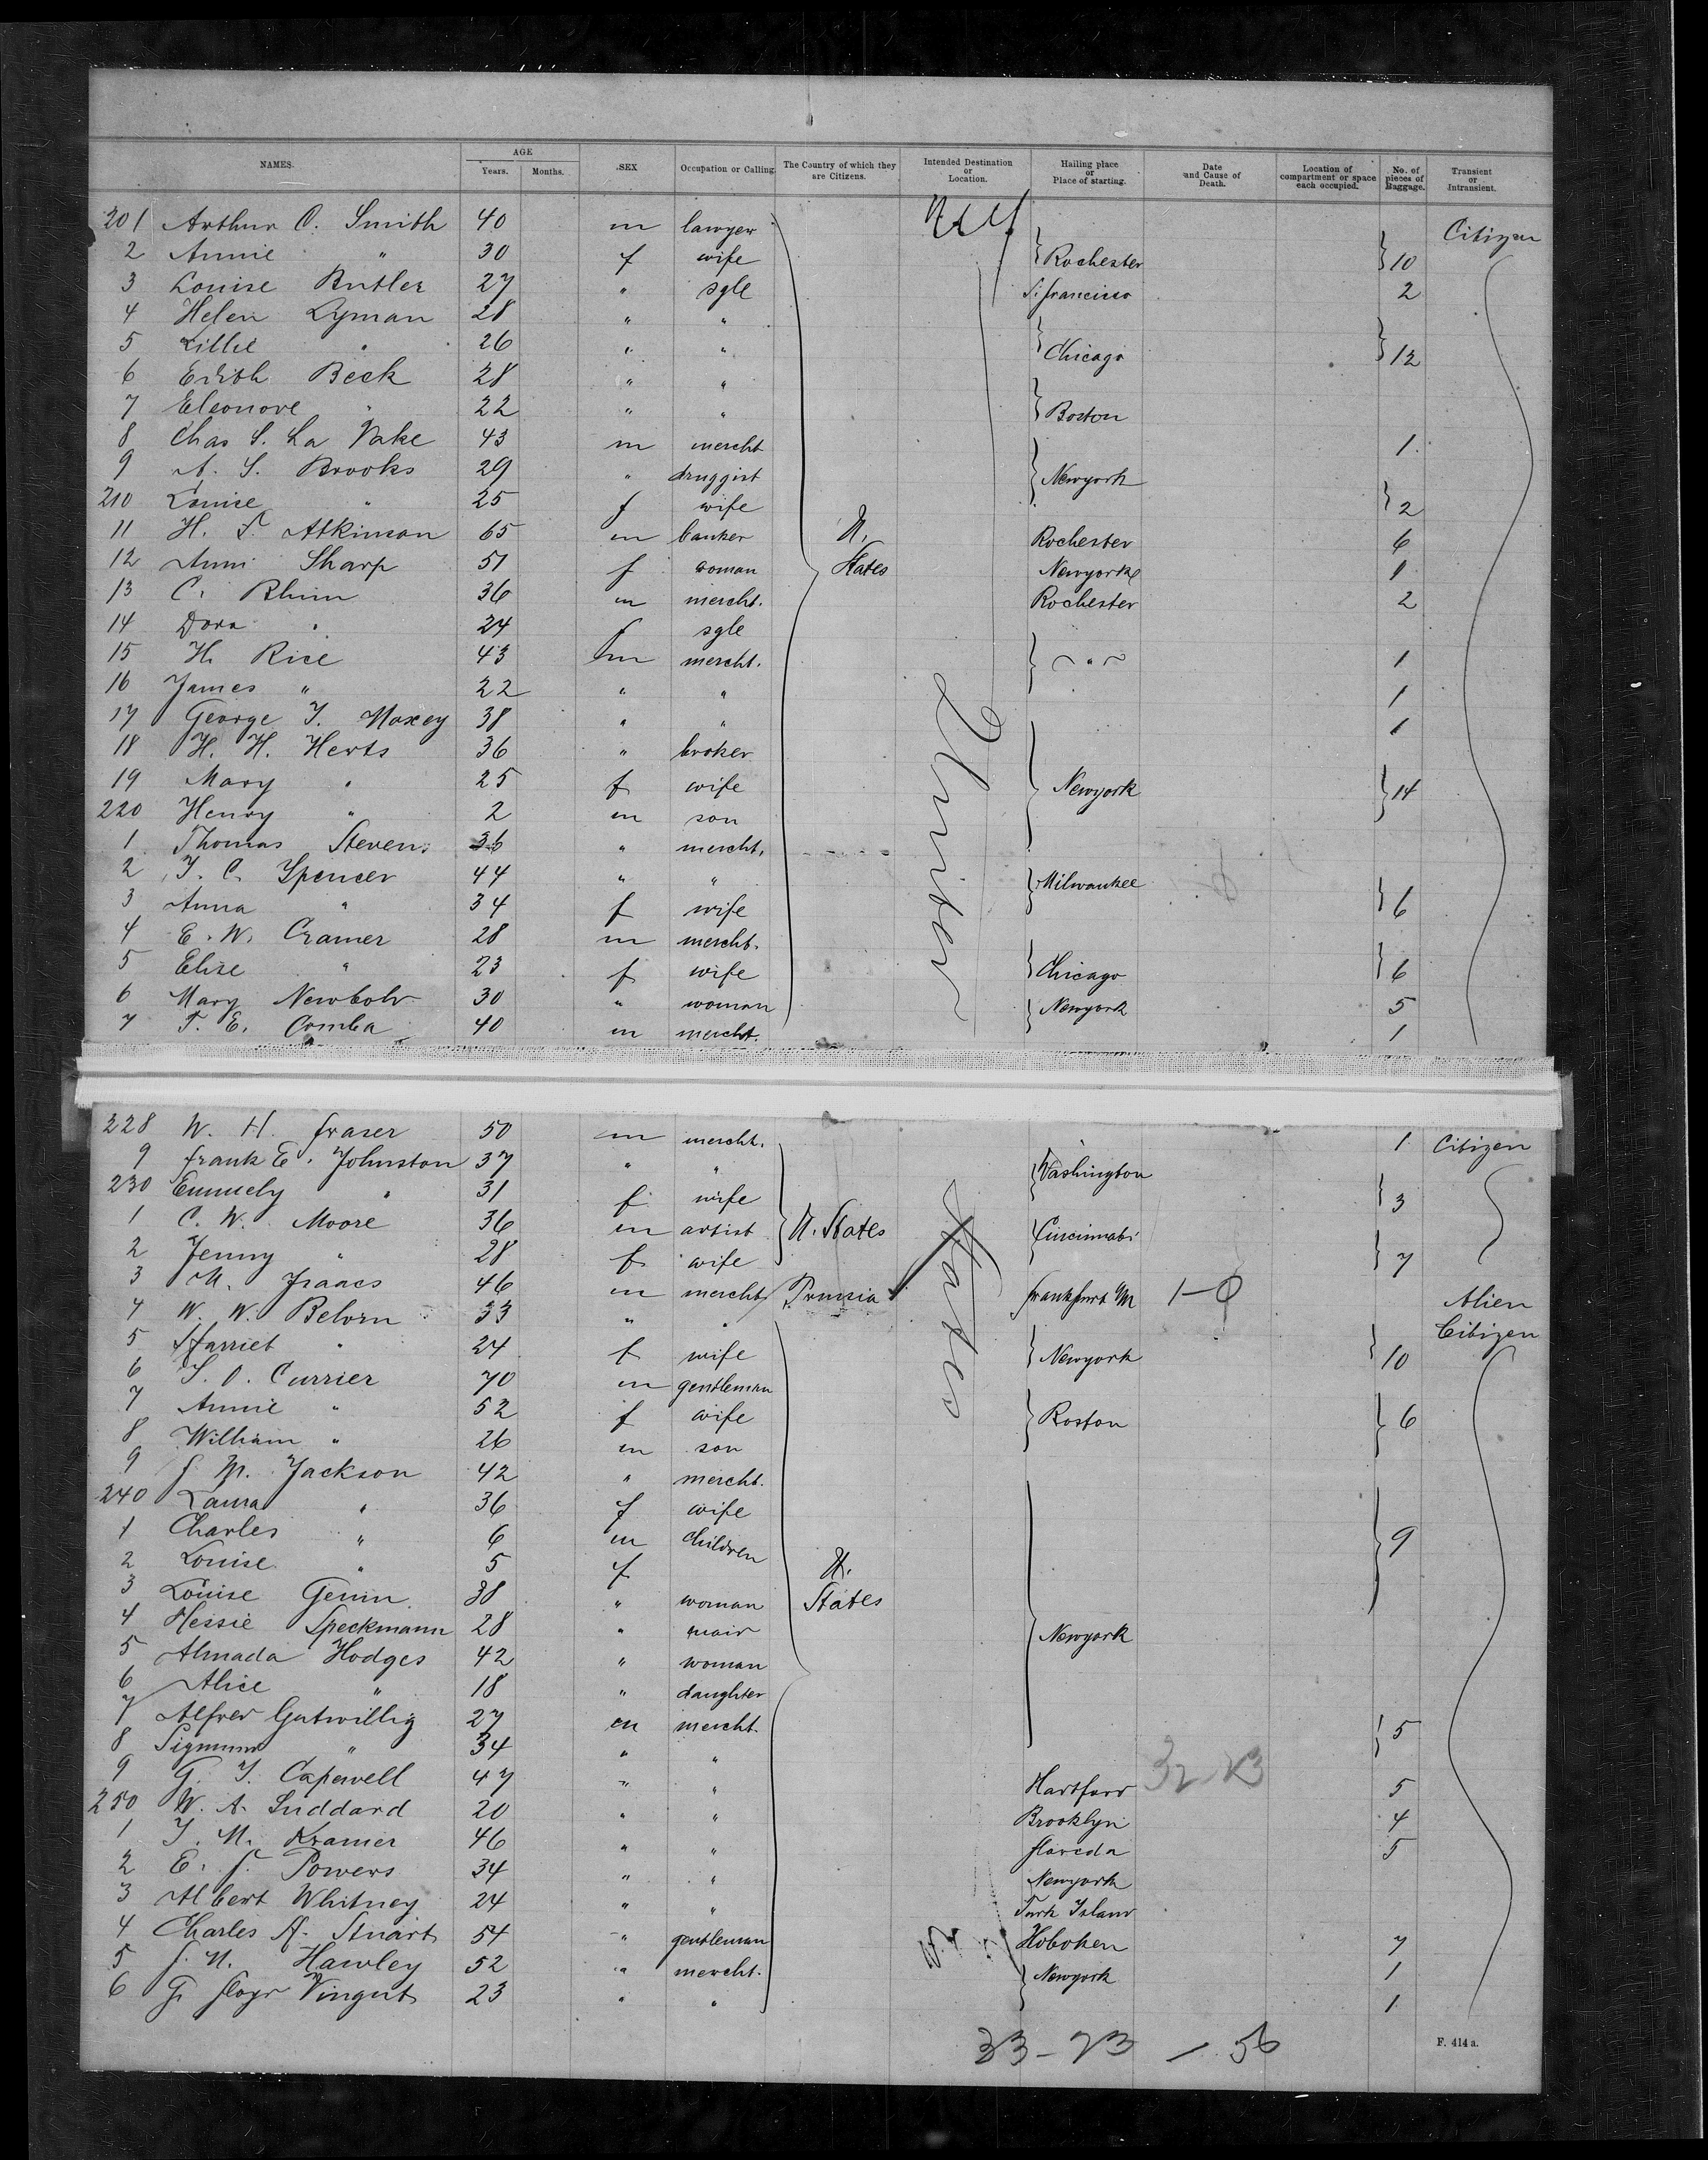 NAMES. AGE Years. Months. SEX Occupation or Calling The Country of which they are Citizens. Intended Destination or Location. Hailing place or Place of starting. Date and Cause of Death. Location of compartment or space each occupied. No. of pieces of Baggage. Transient or Intransient.
201 Arthur C. Smith 40 m lawyer Citizen
2 Annie " 30 f wife } Rochester } 10
3 Louise Butler 27 " sgle S. francisco 2
4 Helen Lyman 28 " "
5 Lillie " 26 " " } Chicago } 12
6 Edith Beck 28 " "
7 Eleonore " 22 " " } Boston
8 Chas S. La Vake 43 m mercht 1
9 A. S. Brooks 29 " druggist } Newyork
210 Louise " 25 f wife } 2
11 H. T. Atkinson 65 m banker U. Rochester 6
12 Anni Sharp 51 f woman States Newyork 1
13 C. Rhum 36 m mercht. Rochester 2
14 Dora " 24 f sgle
15 H. Rice 43 m mercht. } " 1
16 James " 22 " " 1
17 George T. Maxey 38 " " 1
18 H. H. Herts 36 " broker
19 Mary " 25 f wife } Newyork } 14
220 Henry " 2 m son
1 Thomas Stevens 36 " mercht.
2 T. C. Spencer 44 " " } Milwaukee
3 Anna " 34 f wife } 6
4 E. W. Cramer 28 m mercht.
5 Elise " 23 f wife } Chicago } 6
6 Mary Newbold 30 " woman } Newyork 5
7 T. E. Comba 40 m mercht. 1
United
228 W. H. fraser 50 m mercht. 1 Citizen
9 frank E. Johnston 37 " " } Washington
230 Emmely " 31 f wife } 3
1 C. W. Moore 36 m artist U. States } Cincinnati
2 Jenny " 28 f wife } 7
3 M. Isaacs 46 m mercht Prussia frankfurt M 1-0 Alien
4 W. W. Belvin 33 " " Citizen
5 Harriet " 24 f wife } Newyork } 10
6 S. O. Currier 70 m gentleman
7 Annie " 52 f wife } Boston } 6
8 William " 26 m son
9 J. M. Jackson 42 " mercht.
240 Laura " 36 f wife
1 Charles " 6 m children } 9
2 Louise " 5 f U.
3 Louise Genin 38 " woman States
4 Hessie Speckmann 28 " maid } Newyork
5 Almada Hodges 42 " woman
6 Alice " 18 " daughter
7 Alfred Gutwillig 27 m mercht. } 5
8 Sigmund " 34 " "
9 G. J. Capewell 47 " " Hartford 5
250 W. A. Suddard 20 " " Brooklyn 4
1 J. M. Kramer 46 " " floreda 5
2 E. J. Powers 34 " " Newyork
3 Albert Whitney 24 " " Turk Island
4 Charles A. Stuart 54 " gentleman Hoboken 7
5 J. N. Hawley 52 " mercht. } Newyork 1
6 G. floyd Vingut 23 " " 1
States
33 - 23 - 56
F. 414 a.